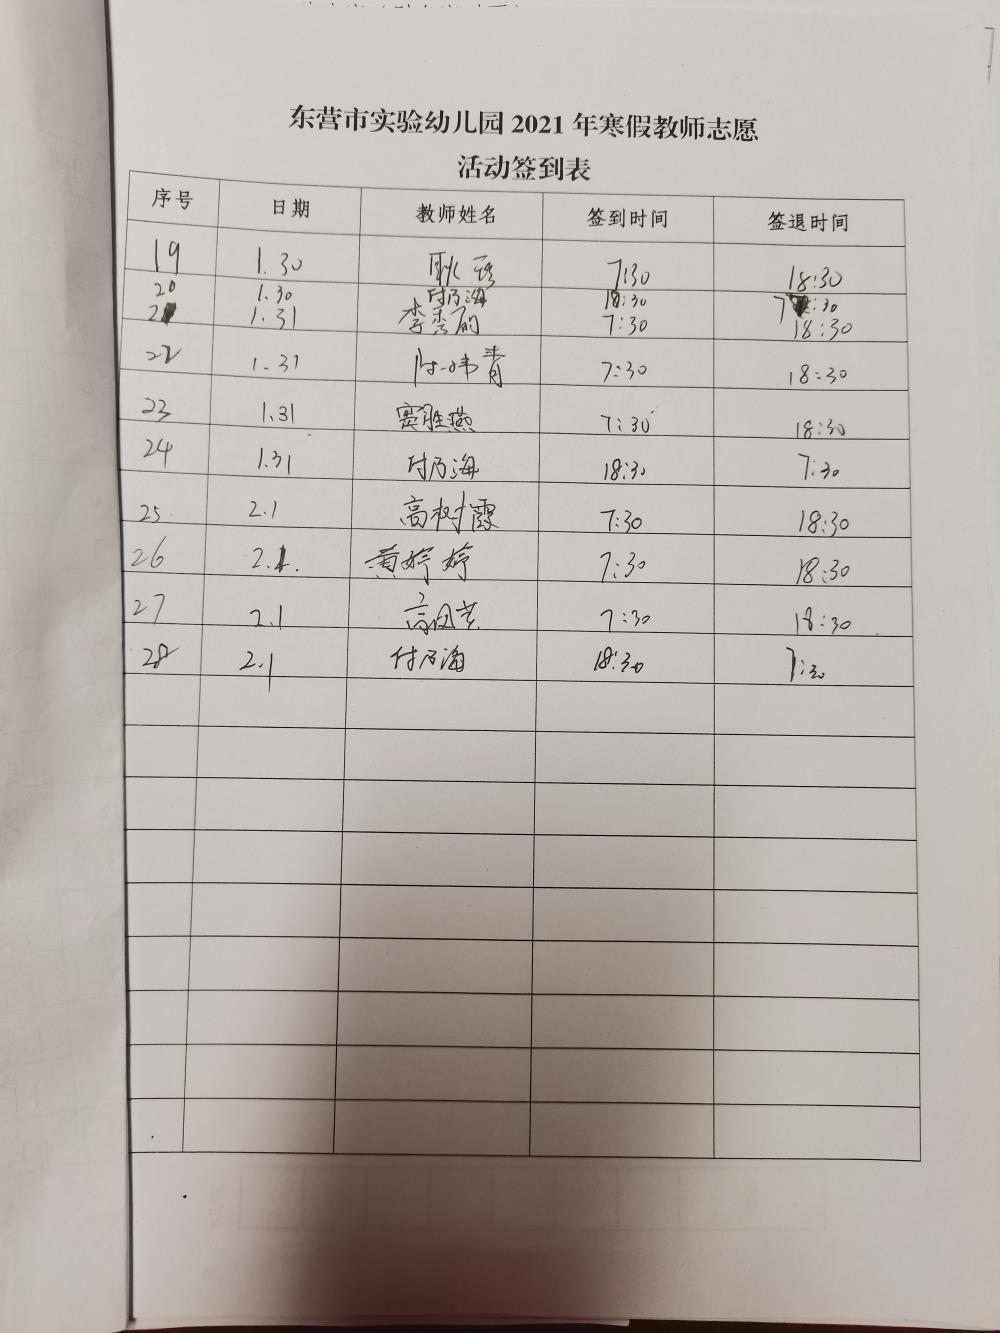 东营市实验幼儿园 2021 年寒假教师志愿
活动签到表
序号 日期 教师姓名 签到时间 签退时间
19 1.30 耿 7:30 18:30
20 1.30 付乃海 18:30 7:30
21 1.31 李秀丽 7:30 18:30
22 1.31 陈炜青 7:30 18:30
23 1.31 窦胜燕 7:30 18:30
24 1.31 付乃海 18:30 7:30
25 2.1 高树霞 7:30 18:30
26 2.1. 黄婷婷 7:30 18:30
27 2.1 7:30 18:30
28 2.1 付乃海 18:30 7:30